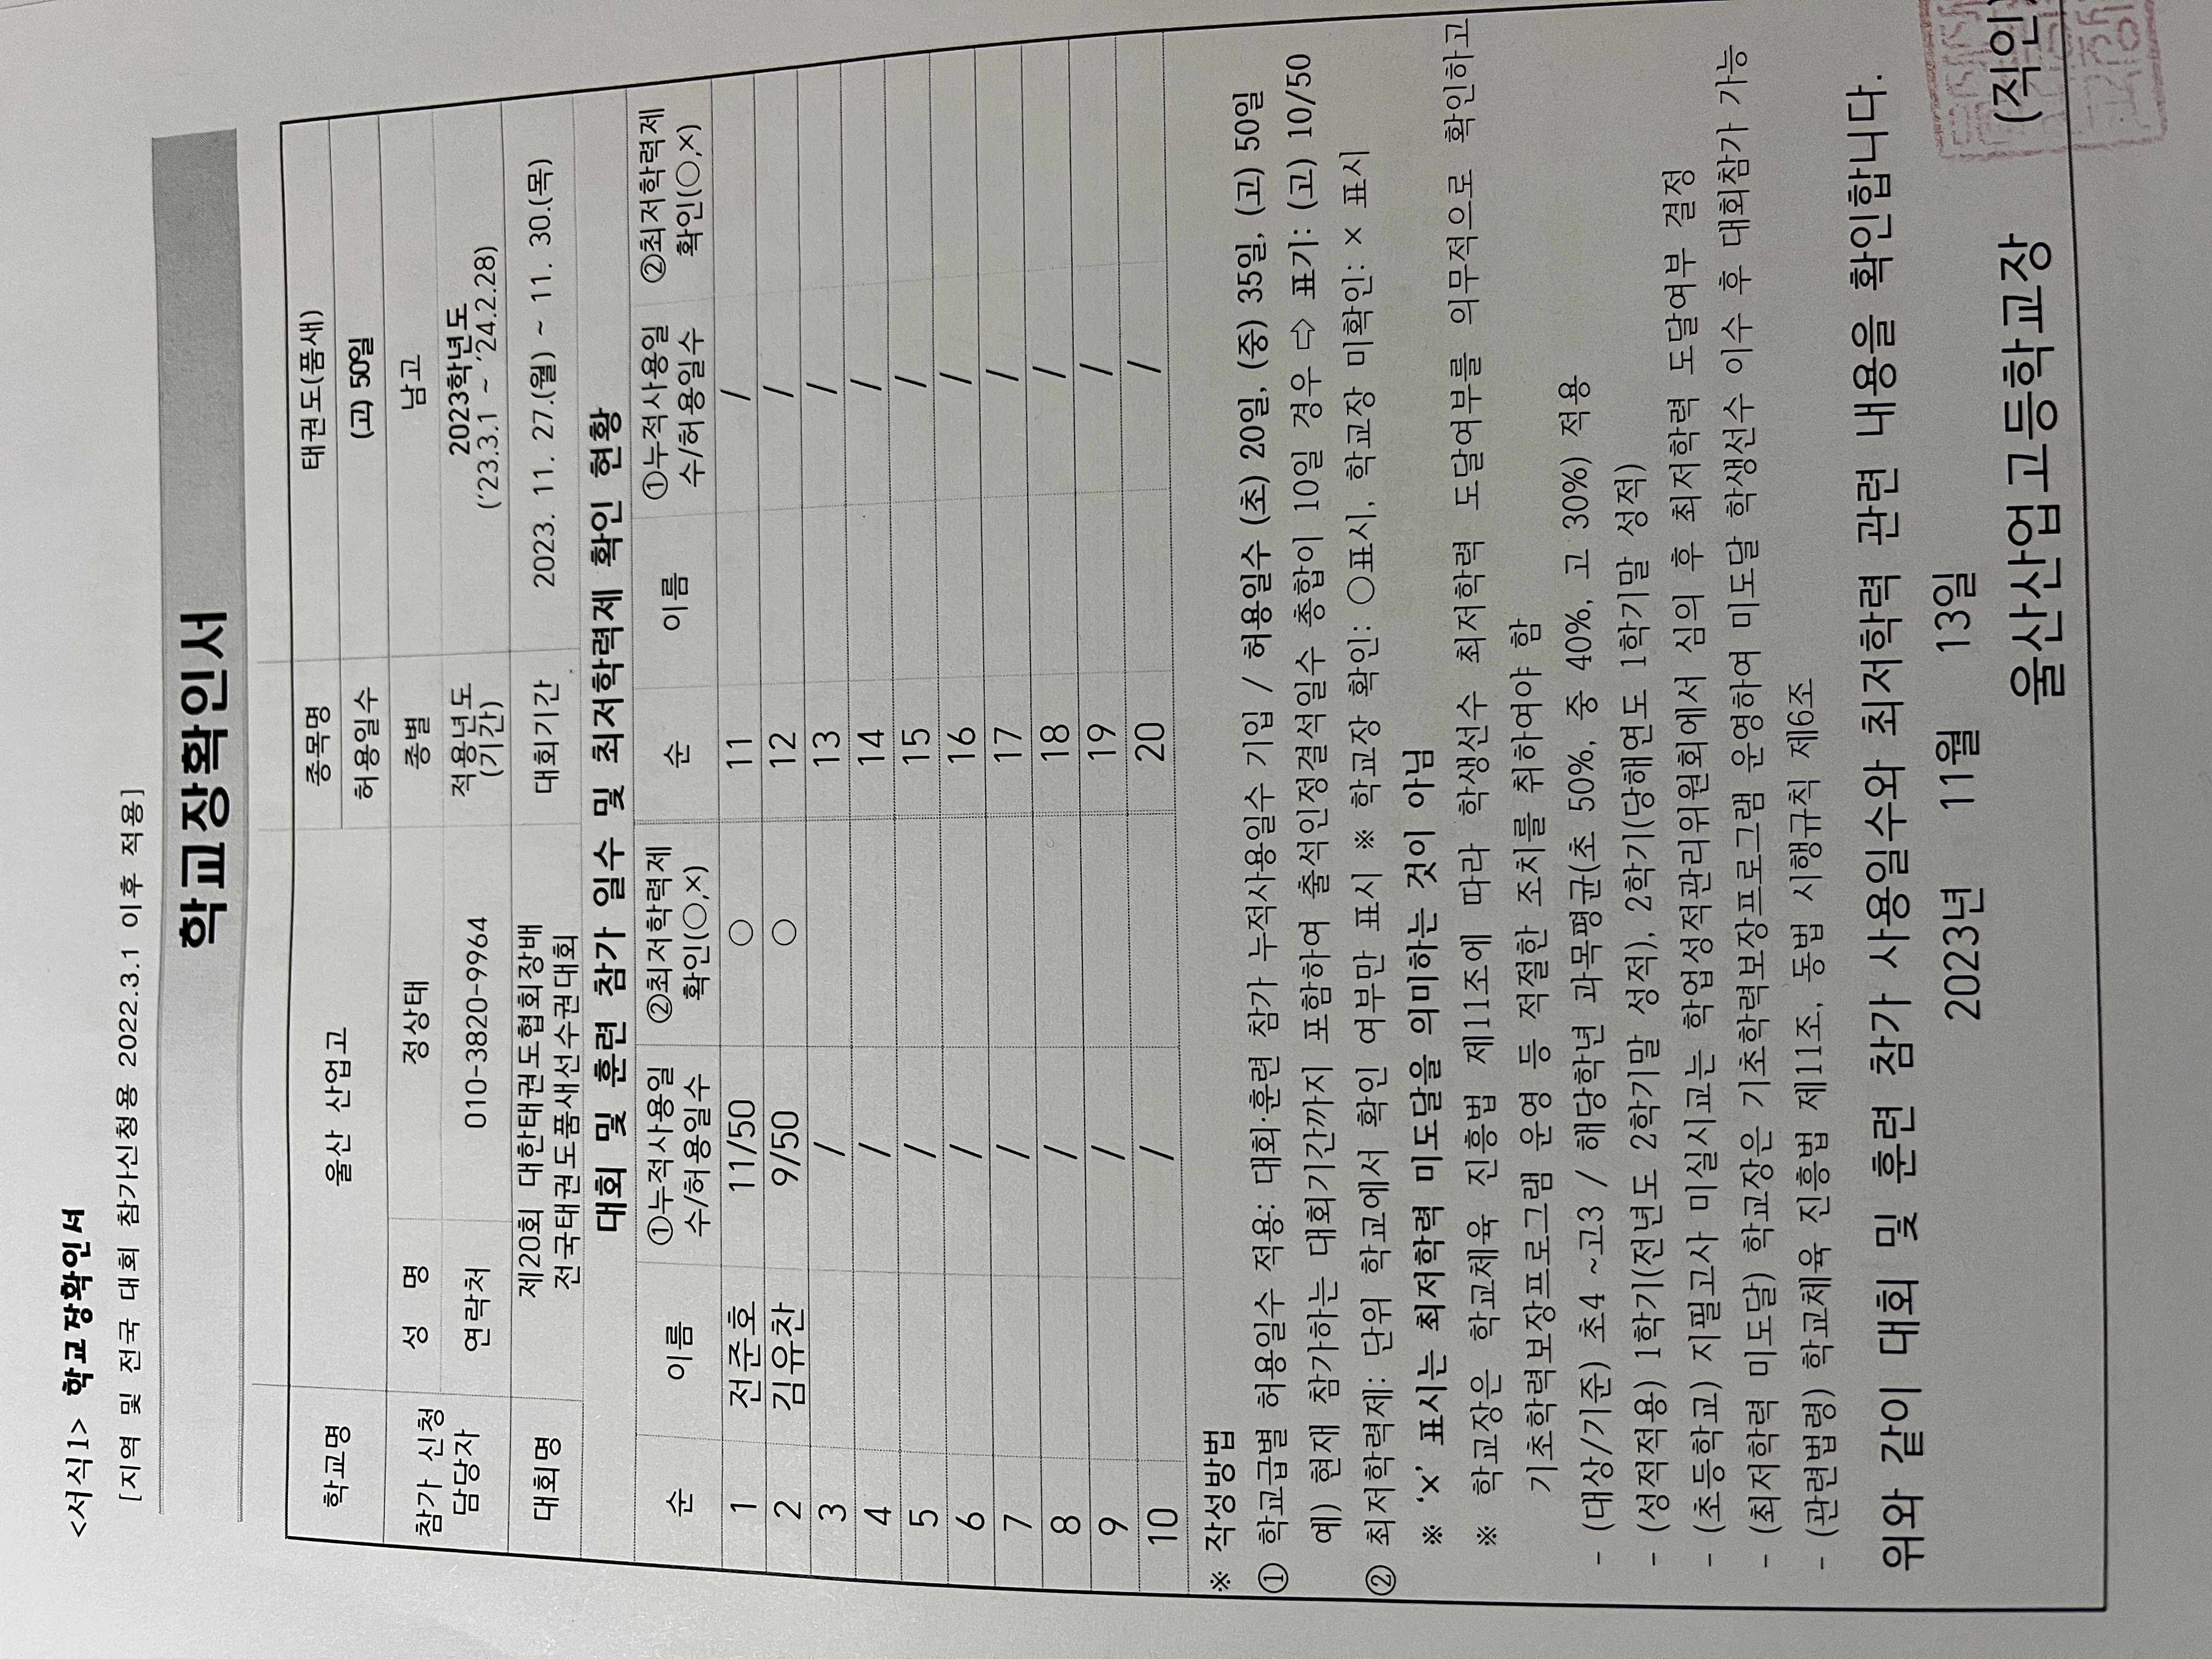 <서식1> 학교장확인서
[지역 및 전국 대회 참가신청용 2022.3.1 이후 적용]
학교장확인서
학교명 울산 산업고 종목명 태권도(품새)
허용일수 (고) 50일
참가 신청 담당자 성 명 정상태 종별 남고
연락처 010-3820-9964 적용년도 (기간) 2023학년도 ('23.3.1 ~ '24.2.28)
대회명 제20회 대한태권도협회장배 전국태권도품새선수권대회 대회기간 2023. 11. 27.(월) ~ 11. 30.(목)
대회 및 훈련 참가 일수 및 최저학력제 확인 현황
순 이름 ①누적사용일수/허용일수 ②최저학력제 확인(○,×) 순 이름 ①누적사용일수/허용일수 ②최저학력제 확인(○,×)
1 전준호 11/50 ○ 11 /
2 김유찬 9/50 ○ 12 /
3 / 13 /
4 / 14 /
5 / 15 /
6 / 16 /
7 / 17 /
8 / 18 /
9 / 19 /
10 / 20 /
※ 작성방법
① 학교급별 허용일수 적용: 대회·훈련 참가 누적사용일수 기입 / 허용일수 (초) 20일, (중) 35일, (고) 50일
예) 현재 참가하는 대회기간까지 포함하여 출석인정결석일수 총합이 10일 경우 ⇨ 표기: (고) 10/50
② 최저학력제: 단위 학교에서 확인 여부만 표시 ※ 학교장 확인: ○표시, 학교장 미확인: × 표시
※ '×' 표시는 최저학력 미도달을 의미하는 것이 아님
※ 학교장은 학교체육 진흥법 제11조에 따라 학생선수 최저학력 도달여부를 의무적으로 확인하고
기초학력보장프로그램 운영 등 적절한 조치를 취하여야 함
- (대상/기준) 초4 ~고3 / 해당학년 과목평균(초 50%, 중 40%, 고 30%) 적용
- (성적적용) 1학기(전년도 2학기말 성적), 2학기(당해연도 1학기말 성적)
- (초등학교) 지필고사 미실시교는 학업성적관리위원회에서 심의 후 최저학력 도달여부 결정
- (최저학력 미도달) 학교장은 기초학력보장프로그램 운영하여 미도달 학생선수 이수 후 대회참가 가능
- (관련법령) 학교체육 진흥법 제11조, 동법 시행규칙 제6조
위와 같이 대회 및 훈련 참가 사용일수와 최저학력 관련 내용을 확인합니다.
2023년 11월 13일
울산산업고등학교장 (직인)